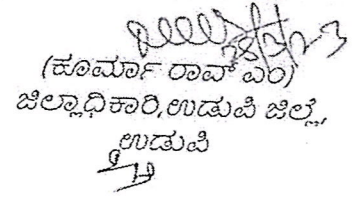 28/3/23
(ಕೂರ್ಮಾ ರಾವ್ ಎಂ)
ಜಿಲ್ಲಾಧಿಕಾರಿ,ಉಡುಪಿ ಜಿಲ್ಲೆ,
ಉಡುಪಿ